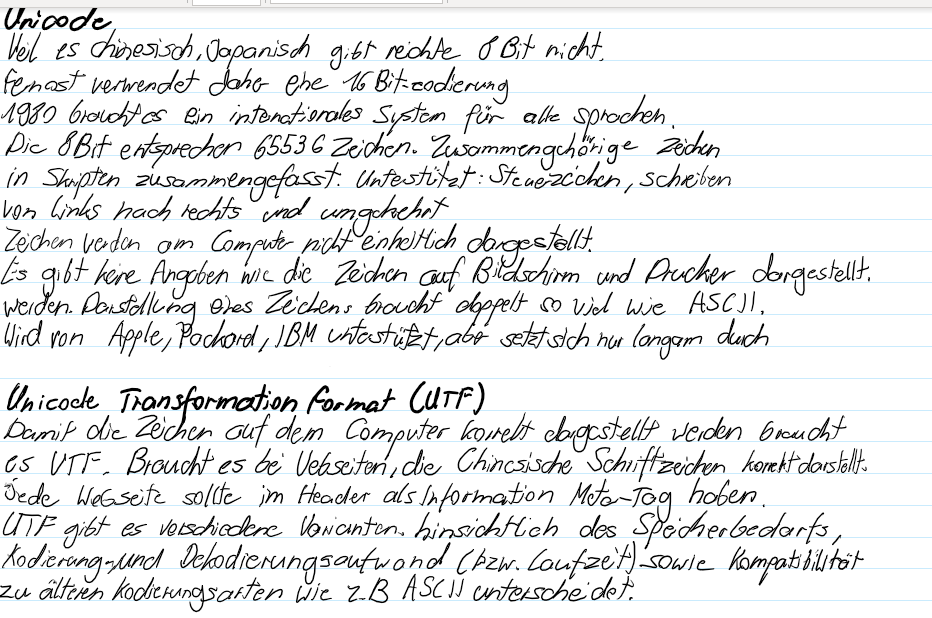 Unicode
Weil es Chinesisch, Japanisch gibt reichte 8 Bit nicht.
Fernost verwendet daher eine 16 Bit-codierung
1980 braucht es ein internationales System für alle sprachen.
Die 8Bit entsprechen 65536 Zeichen. Zusammengehörige Zeichen
in Skripten zusammengefasst. Unterstützt: Steuerzeichen, schreiben
von links nach rechts und umgekehrt
Zeichen werden am Computer nicht einheitlich dargestellt.
Es gibt keine Angaben wie die Zeichen auf Bildschirm und Drucker dargestellt.
werden. Darstellung eines Zeichens braucht doppelt so viel wie ASCII.
Wird von Apple, Packard, IBM unterstützt, aber setzt sich nur langam durch
Unicode Transformation Format (UTF)
Damit die Zeichen auf dem Computer korrekt dargestellt werden braucht
es UTF. Braucht es bei Webseiten, die Chinesische Schriftzeichen korrekt darstellt.
Jede Webseite sollte im Header als Information Meta-Tag haben.
UTF gibt es verschiedene Varianten. hinsichtlich des Speicherbedarfs,
Kodierung- und Dekodierungsaufwand (bzw. Laufzeit) sowie Kompatibilität
zu älteren Kodierungsarten wie z.B ASCII unterscheidet.